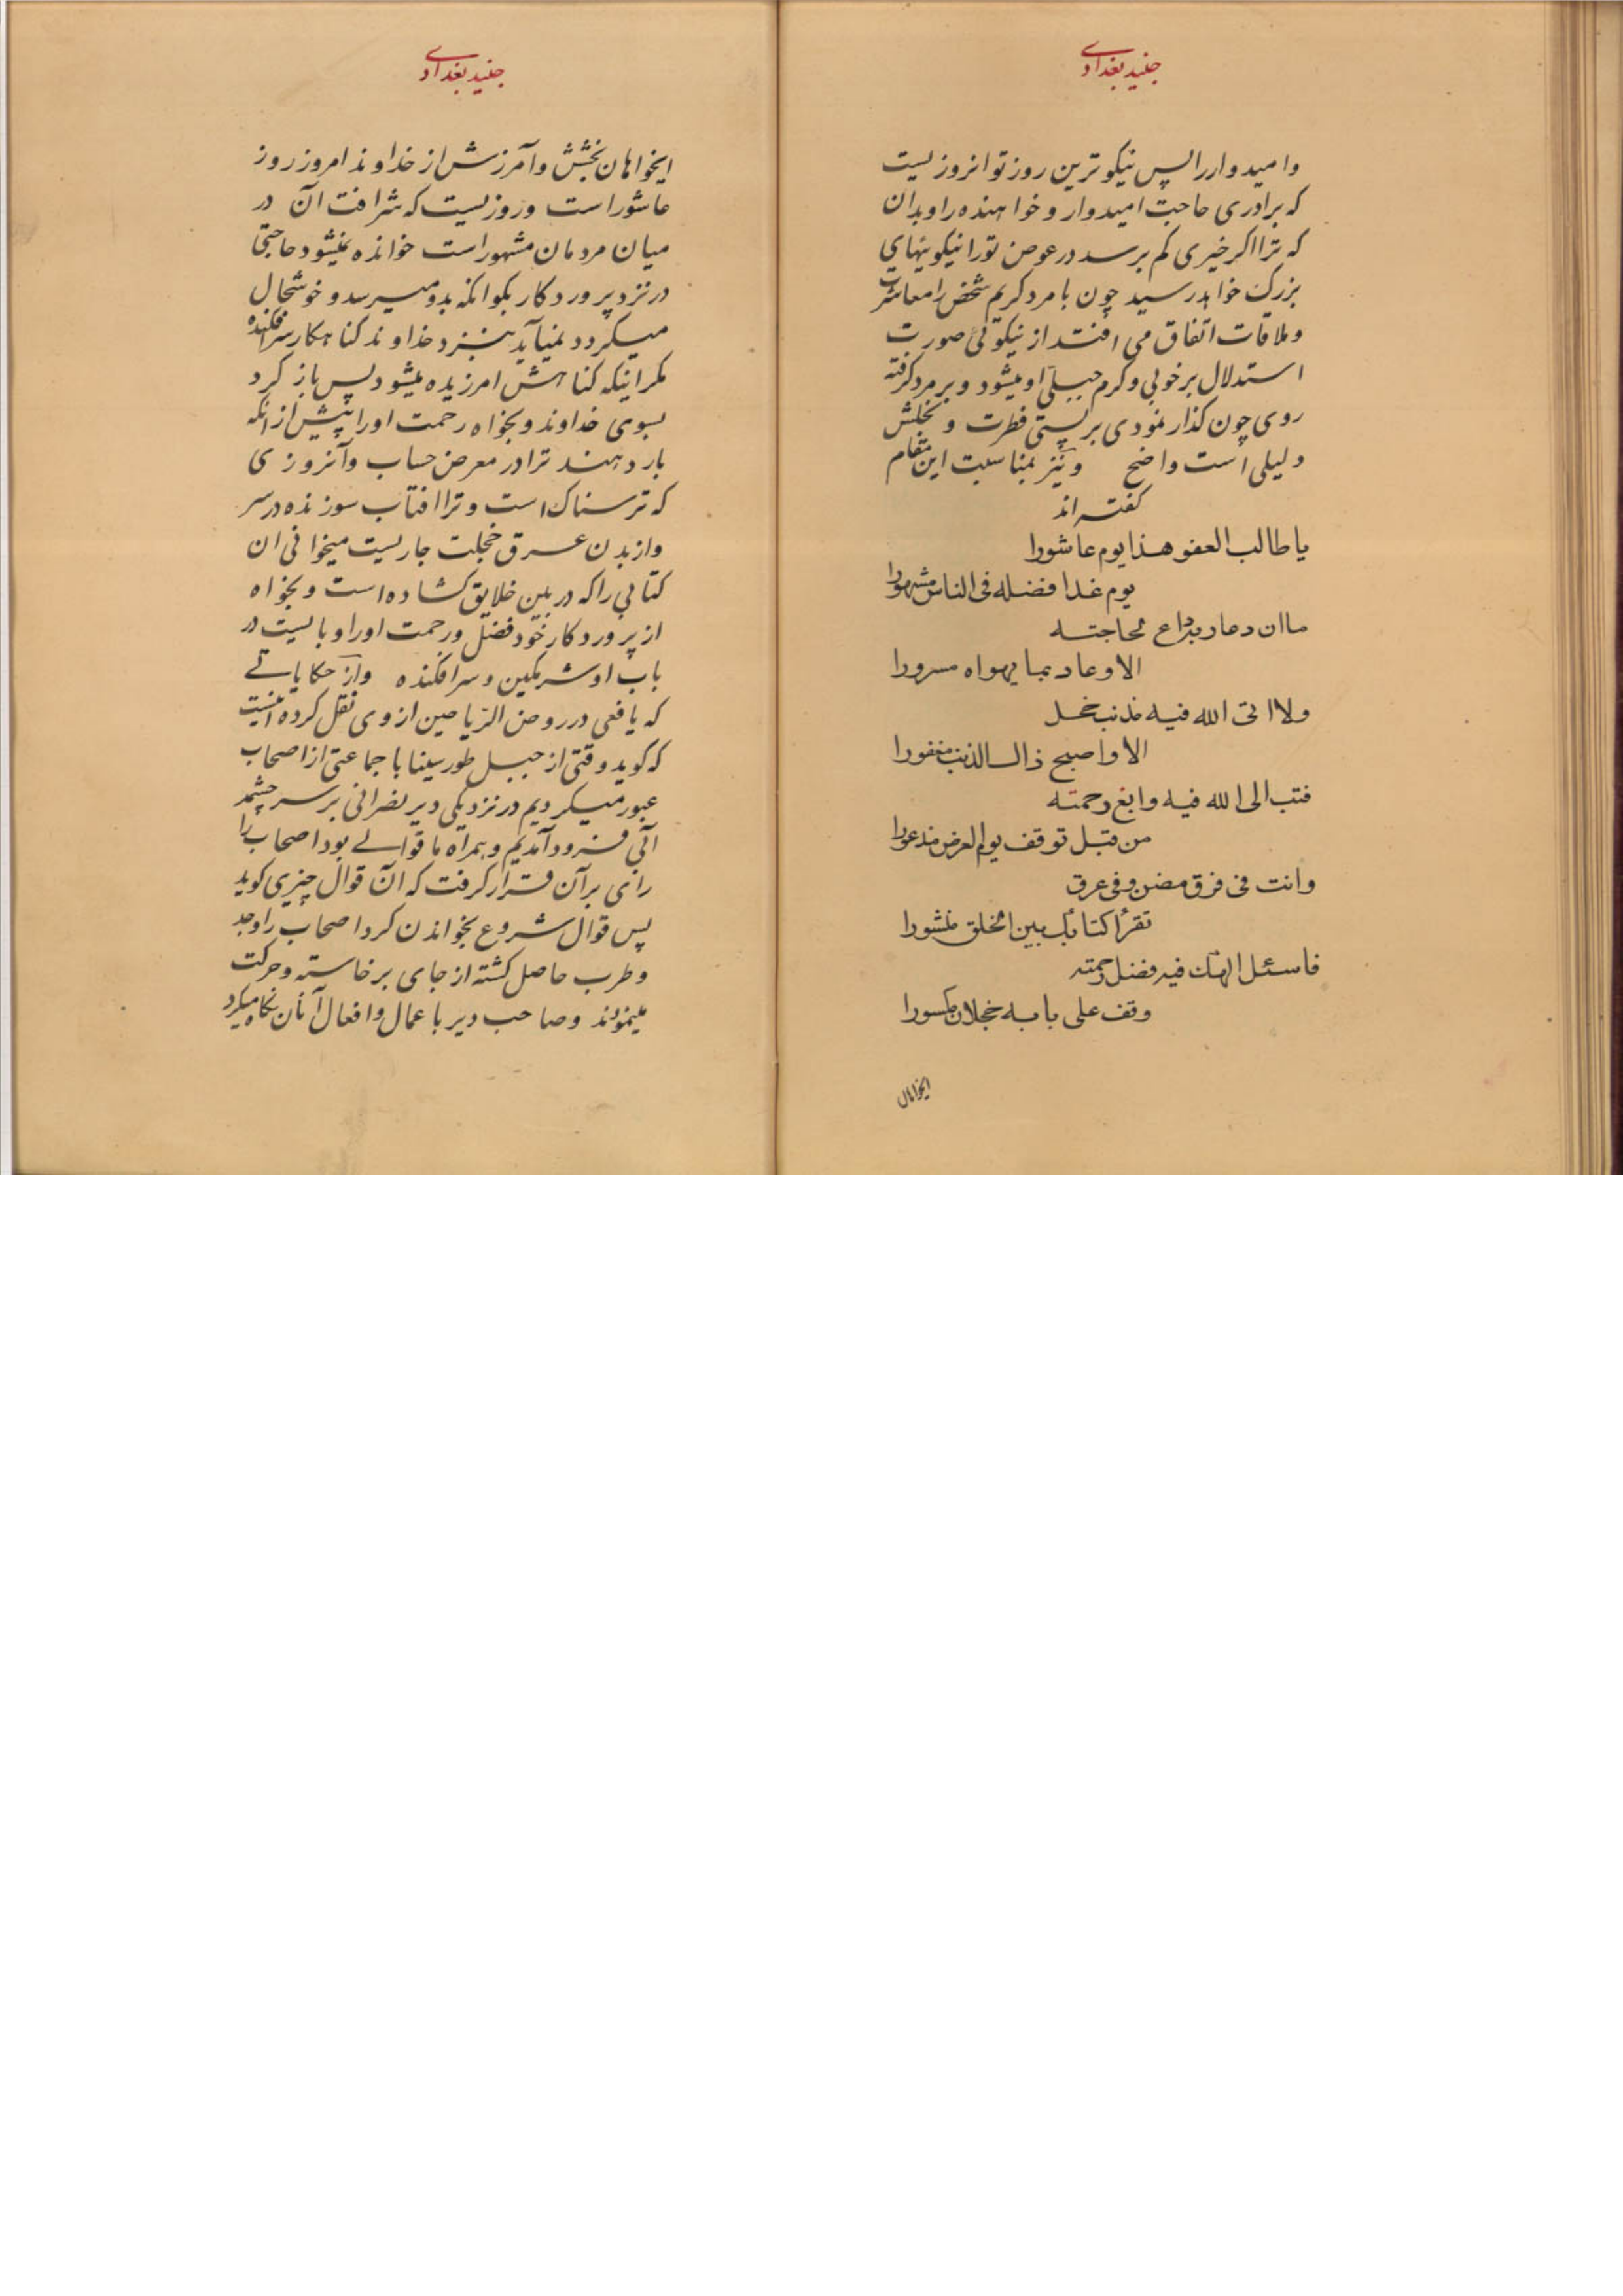 جنید بغدادی
وامیدوار را پس نیکوترین روز تو انروزیست
که برادری حاجت امیدوار و خواهنده را و بدان
که ترا اکر خیری کم برسد در عوض تو را نیکوئیهای
بزرک خواهد رسید چون با مرد کریم شخص را معاشرت
وملاقات اتفاق می افتد از نیکوئی صورت
استدلال بر خوبی وکرم جبلّی او میشود و بر مرد کرفته
روی چون کذار نمودی بر پستی فطرت و بخلش
دلیلی است واضح ونیز بمناسبت این مقام
کفته اند
یا طالب العفو هذا یوم عاشورا
یوم غدا فضله فی الناس مشهورا
ما ان دعا ربه داع لحاجته
الا وعاد بما یهواه مسرورا
ولا اتی الله فیه مذنب خجل
الا واصبح ذاك الذنب مغفورا
فتب الی الله فیه وابغ رحمته
من قبل توقف یوم العرض مذعورا
وانت فی فرق مضن وفی عرق
تقرأ کتابك بین الخلق منشورا
فاسئل الهك فیه فضل رحمته
وقف علی بابه خجلان مکسورا
ایخواهان
جنید بغدادی
ایخواهان بخشش وآمرزش از خداوند امروز روز
عاشوراست وروزیست که شرافت آن در
میان مردمان مشهور است خوانده نمیشود حاجتی
در نزد پروردکار مکر انکه بدو میرسد و خوشحال
میکردد نمیآید بنزد خداوند کناهکار سرافکنده
مکر اینکه کناهش امرزیده میشود پس باز کرد
بسوی خداوند وبخواه رحمت او را پیش از انکه
بار دهند ترا در معرض حساب وآنروزی
که ترسناک است و ترا افتاب سوزنده در سر
واز بدن عرق خجلت جاریست میخوانی ان
کتابی را که در بین خلایق کشاده است وبخواه
از پروردکار خود فضل ورحمت او را وبایست در
باب او شرمکین وسرافکنده واز حکایاتی
که یافعی در روض الریاحین از وی نقل کرده اینست
که کوید وقتی از جبل طور سینا با جماعتی از اصحاب
عبور میکردیم در نزدیکی دیر نصرانی بر سر چشمه
آبی فرود آمدیم وهمراه ما قوالی بود اصحاب را
رای بر آن قرار کرفت که آن قوال چیزی کوید
پس قوال شروع بخواندن کرد اصحاب را وجد
وطرب حاصل کشته از جای برخاسته وحرکت
مینمودند وصاحب دیر باعمال وافعال آنان نکاه میکرد